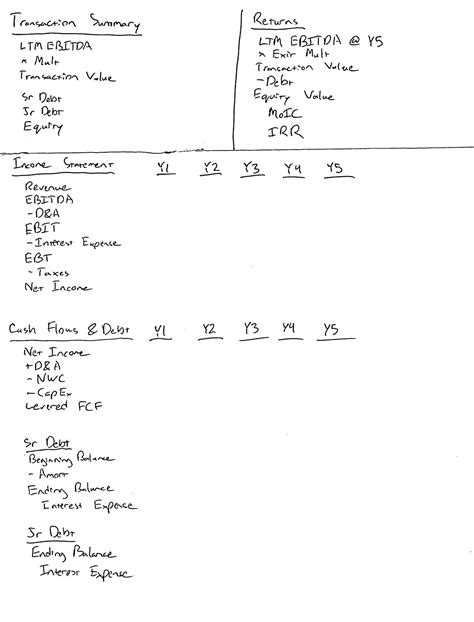 Transaction Summary
LTM EBITDA
x Mult
Transaction Value
Sr Debt
Jr Debt
Equity
Returns
LTM EBITDA @ Y5
x Exit Mult
Transaction Value
- Debt
Equity Value
MoIC
IRR
Income Statement Y1 Y2 Y3 Y4 Y5
Revenue
EBITDA
- D&A
EBIT
- Interest Expence
EBT
- Taxes
Net Income
Cash Flows & Debt Y1 Y2 Y3 Y4 Y5
Net Income
+ D&A
- NWC
- CapEx
Levered FCF
Sr Debt
Beginning Balance
- Amort
Ending Balance
Interest Expence
Jr Debt
Ending Balance
Interest Expence